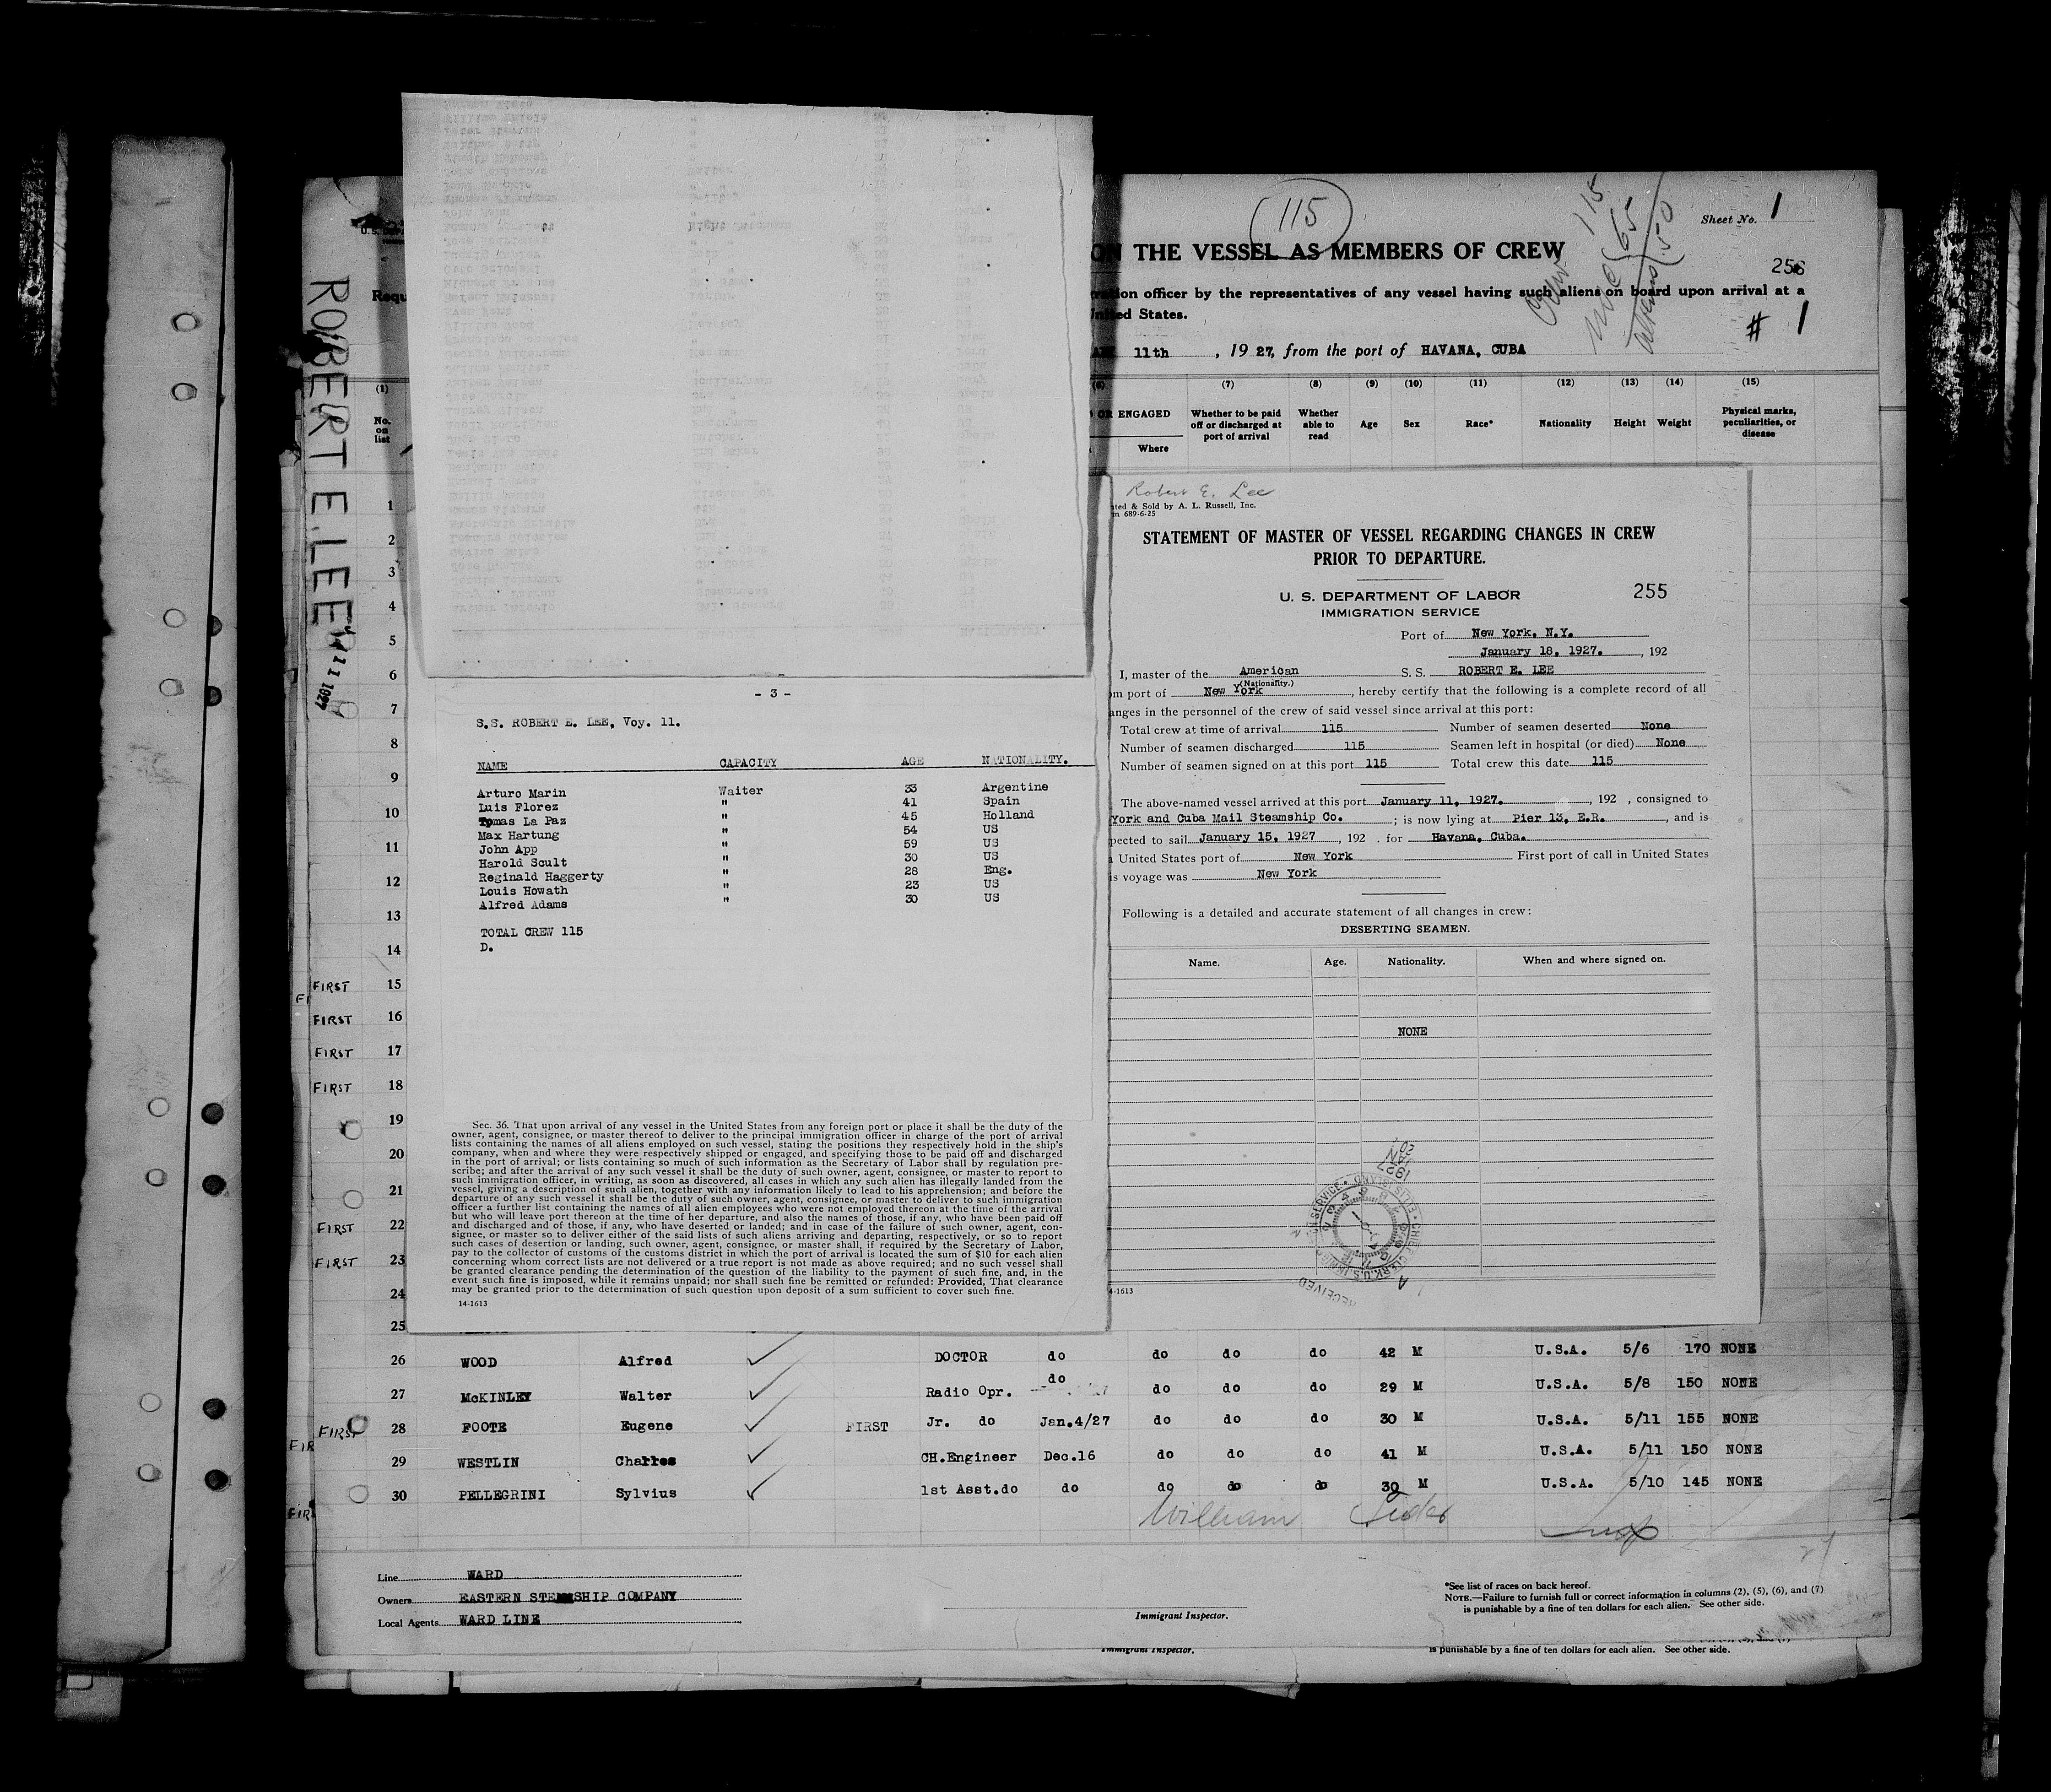 ROBERT E. LEE
115
Sheet No. 1
ON THE VESSEL AS MEMBERS OF CREW
256
officer by the representatives of any vessel having such aliens on board upon arrival at a
United States.
# 1
11th, 1927, from the port of HAVANA, CUBA
(1) (6) (7) (8) (9) (10) (11) (12) (13) (14) (15)
No. on list
OR ENGAGED
Where
Whether to be paid off or discharged at port of arrival
Whether able to read
Age
Sex
Race*
Nationality
Height
Weight
Physical marks, peculiarities, or disease
1
2
3
4
5
6
7
8
9
10
11
12
13
14
FIRST 15
FIRST 16
FIRST 17
FIRST 18
19
20
21
FIRST 22
FIRST 23
24
25
- 3 -
S.S. ROBERT E. LEE, Voy. 11.
NAME CAPACITY AGE NATIONALITY.
Arturo Marin Waiter 33 Argentine
Luis Florez " 41 Spain
Tomas La Paz " 45 Holland
Max Hartung " 54 US
John App " 59 US
Harold Scult " 30 US
Reginald Haggerty " 28 Eng.
Louis Howath " 23 US
Alfred Adams " 30 US
TOTAL CREW 115
D.
Sec. 36. That upon arrival of any vessel in the United States from any foreign port or place it shall be the duty of the
owner, agent, consignee, or master thereof to deliver to the principal immigration officer in charge of the port of arrival
lists containing the names of all aliens employed on such vessel, stating the positions they respectively hold in the ship's
company, when and where they were respectively shipped or engaged, and specifying those to be paid off and discharged
in the port of arrival; or lists containing so much of such information as the Secretary of Labor shall by regulation pre-
scribe; and after the arrival of any such vessel it shall be the duty of such owner, agent, consignee, or master to report to
such immigration officer, in writing, as soon as discovered, all cases in which any such alien has illegally landed from the
vessel, giving a description of such alien, together with any information likely to lead to his apprehension; and before the
departure of any such vessel it shall be the duty of such owner, agent, consignee, or master to deliver to such immigration
officer a further list containing the names of all alien employees who were not employed thereon at the time of the arrival
but who will leave port thereon at the time of her departure, and also the names of those, if any, who have been paid off
and discharged and of those, if any, who have deserted or landed; and in case of the failure of such owner, agent, con-
signee, or master so to deliver either of the said lists of such aliens arriving and departing, respectively, or so to report
such cases of desertion or landing, such owner, agent, consignee, or master shall, if required by the Secretary of Labor,
pay to the collector of customs of the customs district in which the port of arrival is located the sum of $10 for each alien
concerning whom correct lists are not delivered or a true report is not made as above required; and no such vessel shall
be granted clearance pending the determination of the question of the liability to the payment of such fine, and, in the
event such fine is imposed, while it remains unpaid; nor shall such fine be remitted or refunded: Provided, That clearance
may be granted prior to the determination of such question upon deposit of a sum sufficient to cover such fine.
14-1613
Robert E. Lee
& Sold by A. L. Russell, Inc.
689-6-25
STATEMENT OF MASTER OF VESSEL REGARDING CHANGES IN CREW
PRIOR TO DEPARTURE.
U. S. DEPARTMENT OF LABOR 255
IMMIGRATION SERVICE
Port of New York, N.Y.
January 18, 1927. , 192
I, master of the American S. S. ROBERT E. LEE
(Nationality.)
m port of New York, hereby certify that the following is a complete record of all
anges in the personnel of the crew of said vessel since arrival at this port:
Total crew at time of arrival 115 Number of seamen deserted None
Number of seamen discharged 115 Seamen left in hospital (or died) None
Number of seamen signed on at this port 115 Total crew this date 115
The above-named vessel arrived at this port January 11, 1927. , 192 , consigned to
York and Cuba Mail Steamship Co. ; is now lying at Pier 13, E.R. , and is
pected to sail January 15, 1927 , 192 . for Havana, Cuba.
United States port of New York First port of call in United States
is voyage was New York
Following is a detailed and accurate statement of all changes in crew:
DESERTING SEAMEN.
Name. Age. Nationality. When and where signed on.
NONE
4-1613
RECEIVED
JAN 20 1927
26 WOOD Alfred DOCTOR do do do do 42 M U.S.A. 5/6 170 NONE
27 McKINLEY Walter Radio Opr. do do do do 29 M U.S.A. 5/8 150 NONE
FIRST 28 FOOTE Eugene FIRST Jr. do Jan.4/27 do do do 30 M U.S.A. 5/11 155 NONE
29 WESTLIN Charles CH.Engineer Dec.16 do do do 41 M U.S.A. 5/11 150 NONE
30 PELLEGRINI Sylvius 1st Asst.do do do do do 30 M U.S.A. 5/10 145 NONE
William
Line WARD
Owners EASTERN STEAMSHIP COMPANY
Local Agents WARD LINE
Immigrant Inspector.
*See list of races on back hereof.
NOTE.—Failure to furnish full or correct information in columns (2), (5), (6), and (7)
is punishable by a fine of ten dollars for each alien. See other side.
Immigrant Inspector.
is punishable by a fine of ten dollars for each alien. See other side.